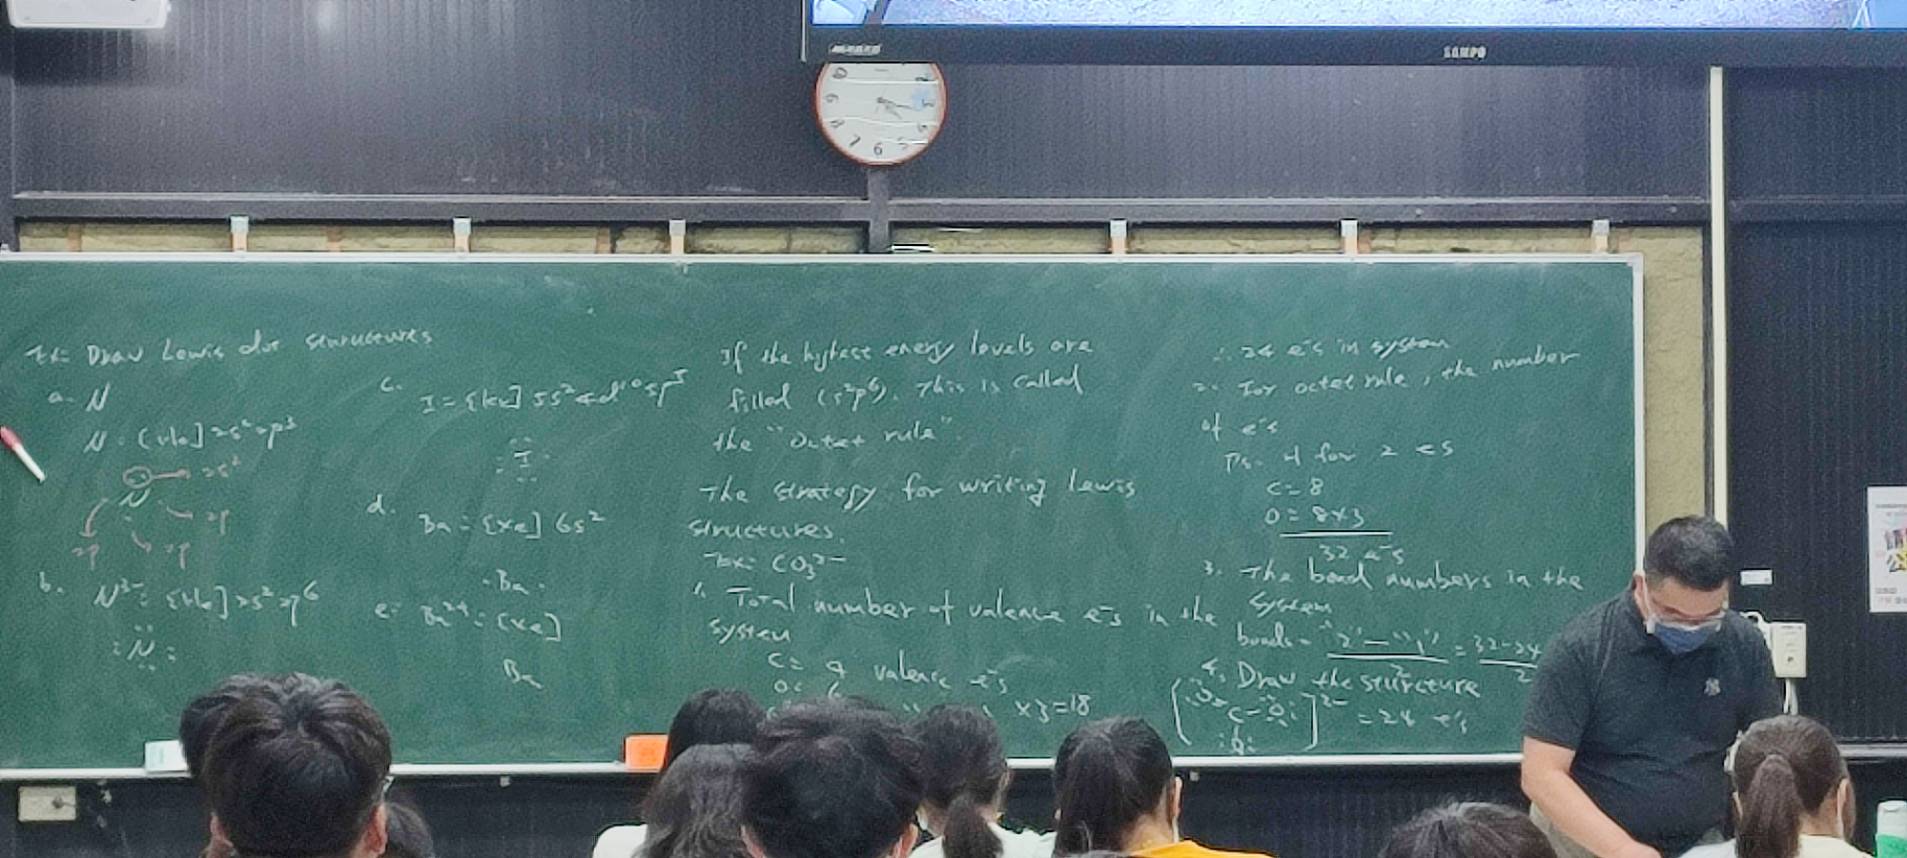 SAMPO
Ex: Draw Lewis dot structures
a. N
N: [He] 2s² 2p³
2s²
N
2p
2p
2p
b. N³⁻ = [He] 2s² 2p⁶
:N:
c.
I = [Kr] 5s² 4d¹⁰ 5p⁵
: I .
d.
Ba = [Xe] 6s²
. Ba .
e. Ba²⁺ = [Xe]
Ba
If the highest energy levels are
filled (s²p⁶). This is called
the "octet rule".
The strategy for writing Lewis
structures.
Ex: CO₃²⁻
1. Total number of valence e⁻s in the
system
C = 4 valence e⁻s
O = 6
x3=18
∴ 24 e⁻s in system
2. For octet rule, the number
of e⁻s
H for 2 e⁻s
C = 8
O = 8×3
32 e⁻s
3. The bond numbers in the
system
bonds = "2" - "1" / 2 = 32-24 / 2
4. Draw the structure
[ O C - O O ]²⁻ = 24 e⁻s
6
5
7
8
9